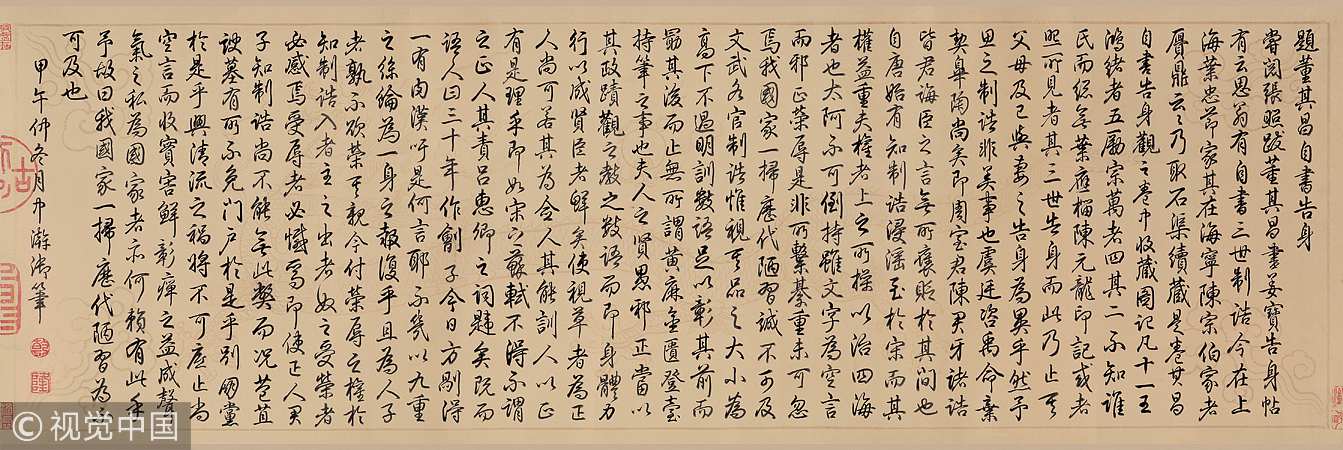 題董其昌自書告身
嘗閱張照跋董其昌書安寶告身帖
有云思翁有自書三世制誥今在上
海葉忠節家其在海寧陳宗伯家者
贋鼎云云乃取石渠續藏是卷其昌
自書告身觀之卷中收藏圖記凡十一王
鴻緒者五勵宗萬者四其二不知誰
氏而總無葉應榴陳元龍印記或者
照所見者其三世告身而此乃止其
父母及己與妻之告身為異乎然予
思之制誥非美事也虞廷咨禹命棄
契皐陶尚矣即周室君陳君牙諸誥
皆君誨臣之言無所褒貶於其間也
自唐始有知制誥漫濫至於宋而其
權益重夫權者上之所操以治四海
者也太阿不可倒持雖文字為空言
而邪正榮辱是非所繫綦重未可忽
焉我國家一掃歷代陋習誠不可及
文武各官制誥惟視其品之大小為
高下不過明訓數語足以彰其前而
勗其後而止無所謂黃麻金匱登臺
持筆之事也夫人之賢愚邪正當以
其政蹟觀之教之數語而即身體力
行以成賢臣者鮮矣使視草者為正
人尚可若其為僉人其能訓人以正
有是理乎即如宋之蘇軾不得不謂
之正人其責呂惠卿之詞韙矣既而
語人曰三十年作劊子今日方剮得
一有肉漢吁是何言耶不幾以九重
之絲綸為一身之報復乎且為人子
者孰不欲榮其親今付榮辱之權於
知制誥入者主之出者奴之受榮者
必感焉受辱者必憾焉即使正人君
子知制誥尚不能無此弊而況苞苴
諛墓有所不免門戶於是乎別朋黨
於是乎興清流之禍將不可底止尚
空言而收實害鮮彰癉之益成聲
氣之私為國家者亦何賴有此乎
予故曰我國家一掃歷代陋習為不
可及也
甲午仲冬月中澣御筆
©視覺中国